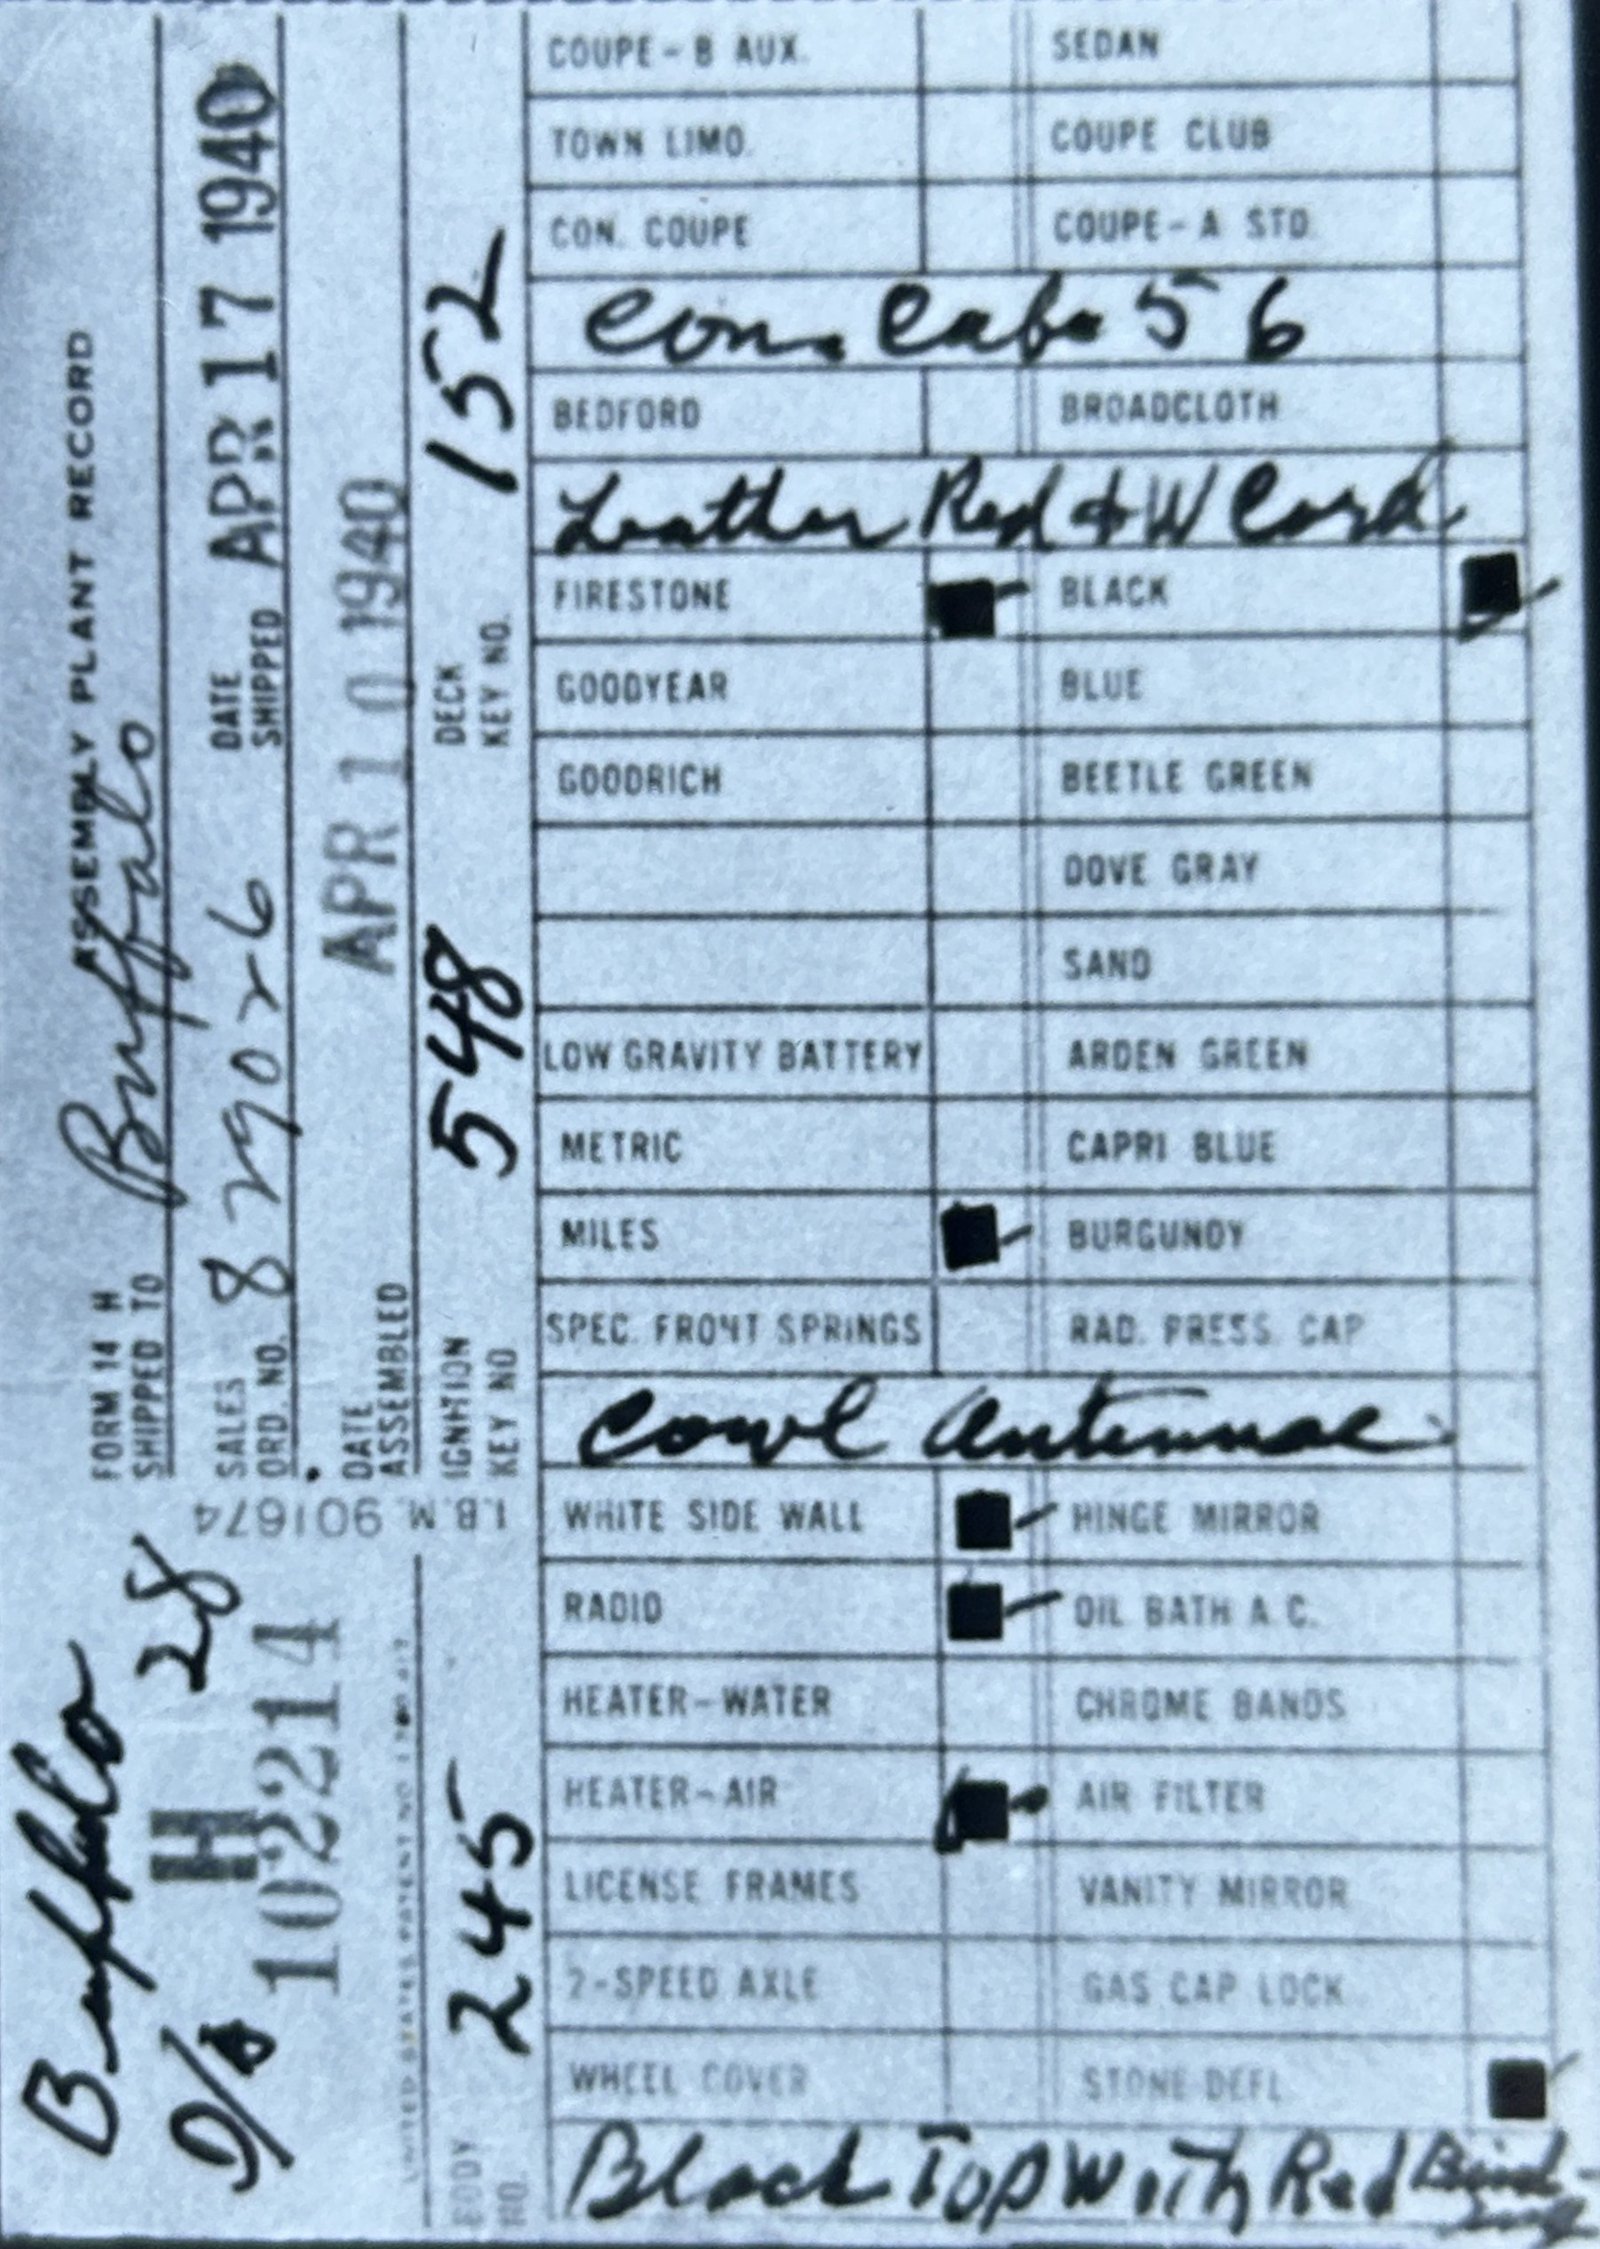 FORM 14 H ASSEMBLY PLANT RECORD
SHIPPED TO Buffalo
SALES ORD. NO. 8 29026 DATE SHIPPED APR 17 1940
DATE ASSEMBLED APR 10 1940
IGNITION KEY NO 548 DECK KEY NO. 152
Buffalo
28
H
102214
I.B.M. 901674
BODY NO. 245
COUPE - B AUX. SEDAN
TOWN LIMO. COUPE CLUB
CON. COUPE COUPE - A STD.
Con. Cab. 56
BEDFORD BROADCLOTH
Leather Red & W Cord
FIRESTONE BLACK
GOODYEAR BLUE
GOODRICH BEETLE GREEN
DOVE GRAY
SAND
LOW GRAVITY BATTERY ARDEN GREEN
METRIC CAPRI BLUE
MILES BURGUNDY
SPEC. FRONT SPRINGS RAD. PRESS. CAP
Cowl Antennae
WHITE SIDE WALL HINGE MIRROR
RADIO OIL BATH A.C.
HEATER - WATER CHROME BANDS
HEATER - AIR AIR FILTER
LICENSE FRAMES VANITY MIRROR
2-SPEED AXLE GAS CAP LOCK
WHEEL COVER STONE DEFL.
Black Top With Red Bind-
ing